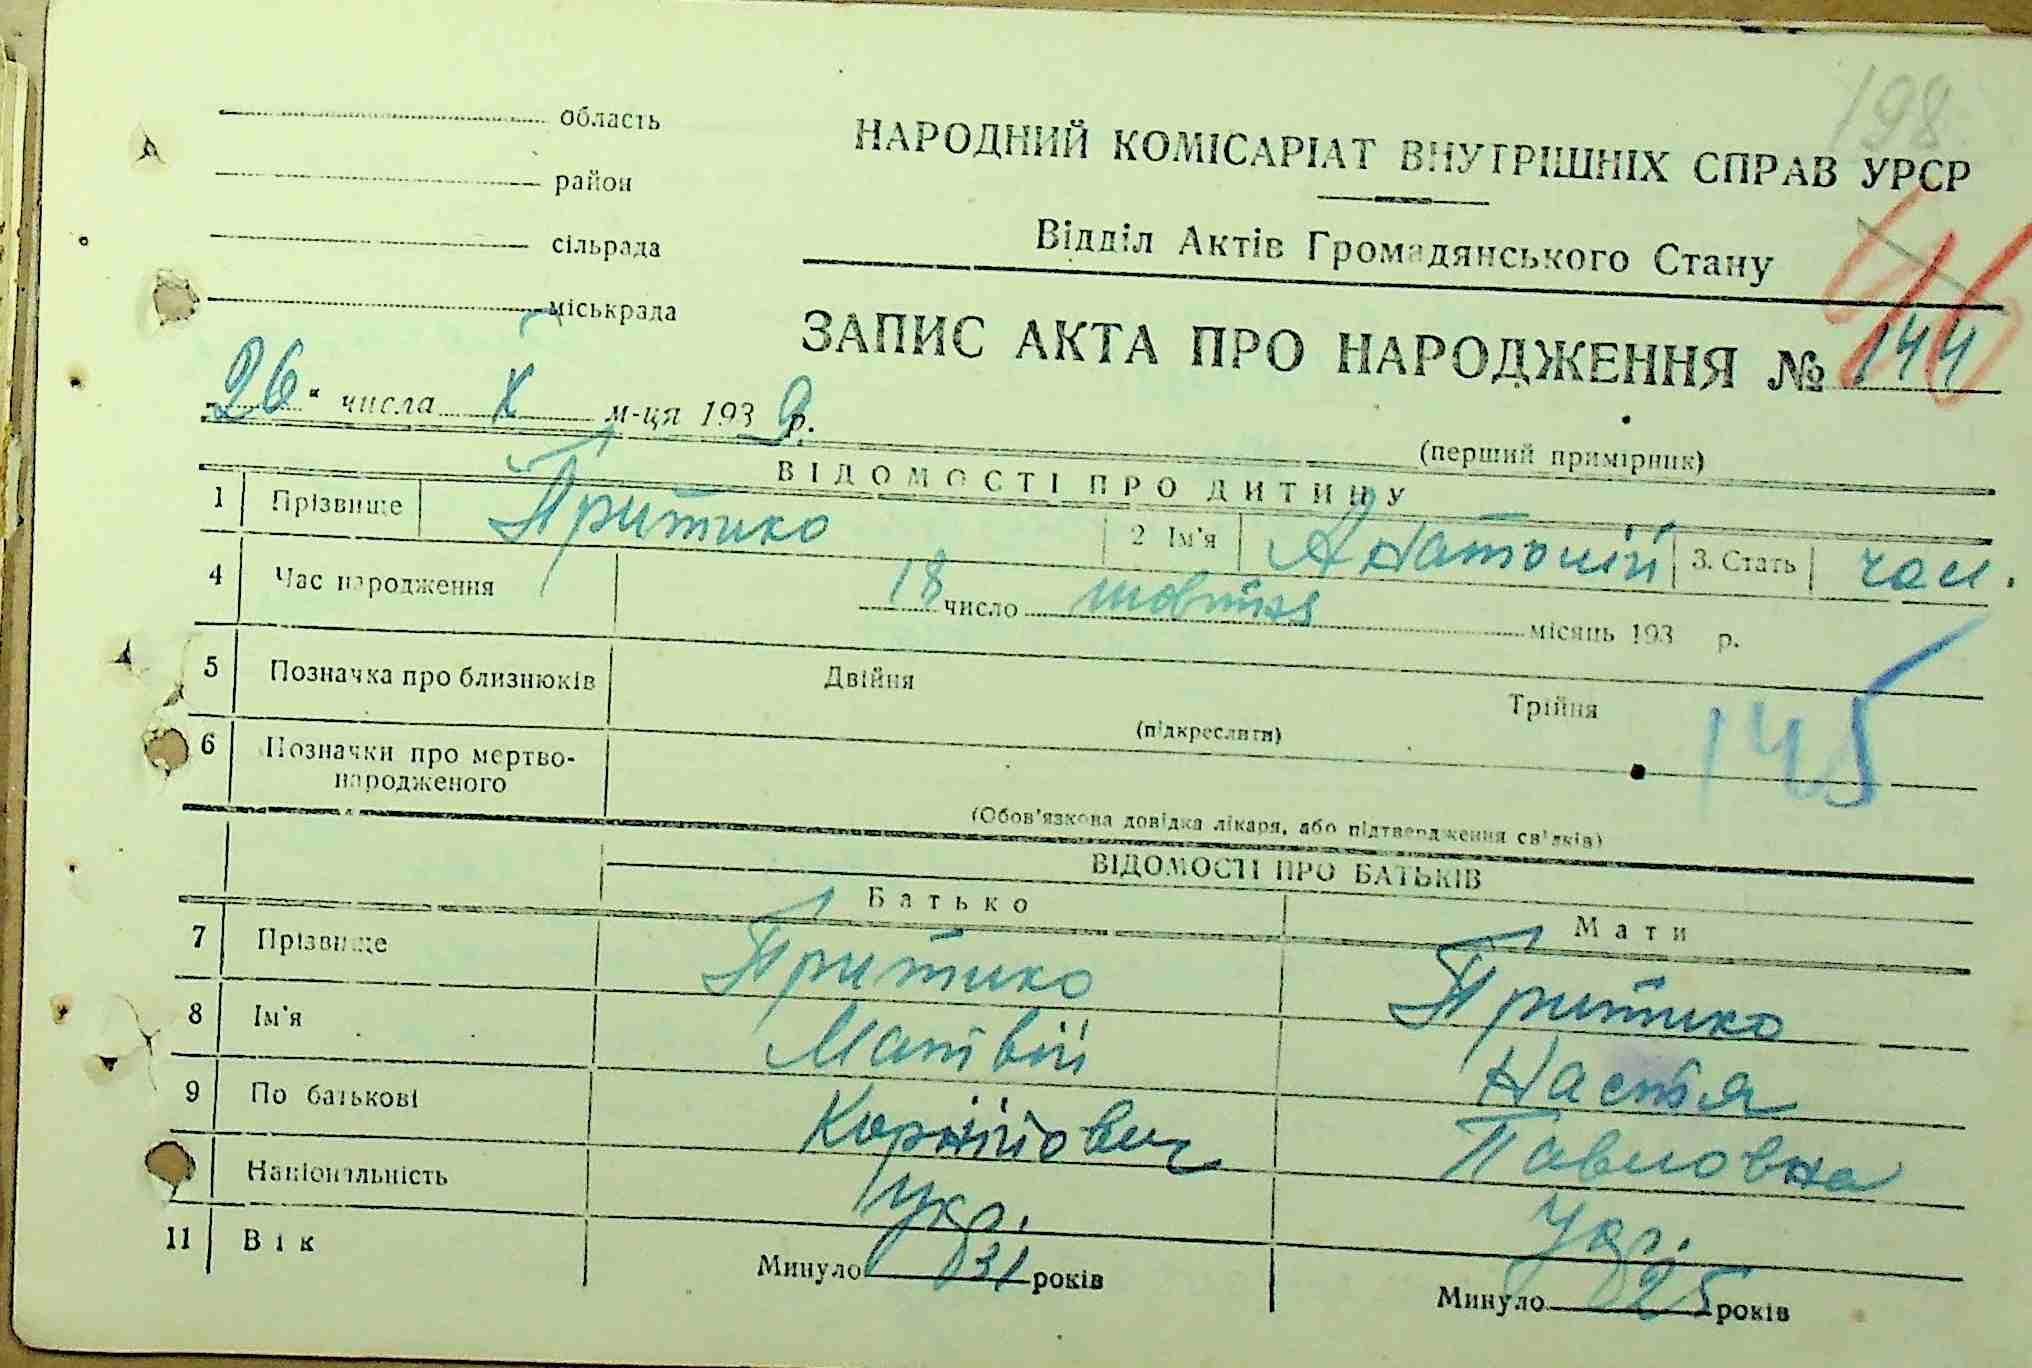 198
область
район
сільрада
міськрада
НАРОДНИЙ КОМІСАРІАТ ВНУТРІШНІХ СПРАВ УРСР
Відділ Актів Громадянського Стану
ЗАПИС АКТА ПРО НАРОДЖЕННЯ № 144
26 " числа X м-ця 1939 р.
(перший примірник)
ВІДОМОСТІ ПРО ДИТИНУ
1 Прізвище Притико 2 Ім'я Анатолій 3. Стать чол.
4 Час народження 18 число жовтня місяць 193 р.
5 Позначка про близнюків Двійня Трійня
(підкреслити)
145
6 Позначки про мертво-
народженого
(Обов'язкова довідка лікаря, або підтвердження свідків)
ВІДОМОСТІ ПРО БАТЬКІВ
Батько Мати
7 Прізвище Притико Притико
8 Ім'я Матвій Настя
9 По батькові Корнійович Павловна
Національність Укр. Укр.
11 Вік Минуло 31 років Минуло 25 років